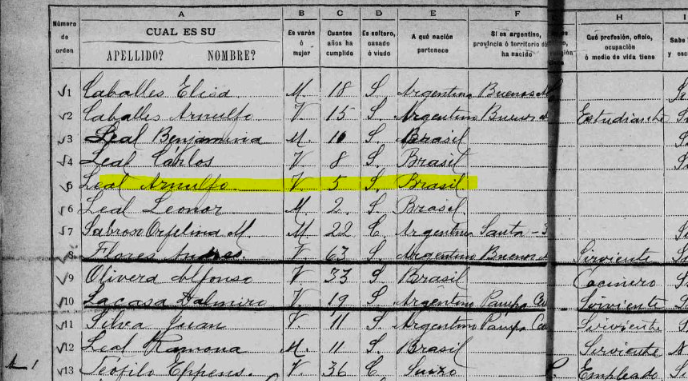 A B C D E F H I
Número de orden CUAL ES SU APELLIDO? NOMBRE? Es varón ó mujer Cuantos años ha cumplido Es soltero, casado ó viudo A qué nación pertenece Si es argentino, provincia ó territorio d ha nacido Qué profesión, oficio, ocupación ó medio de vida tiene Sabe
1 Caballes Elisa M. 18 S. Argentina Buenos
2 Caballes Arnulfo V. 15 S. Argentina Buenos Estudiante
3 Leal Benjamina M. 10 S. Brasil
4 Leal Carlos V. 8 S. Brasil
5 Leal Arnulfo V. 5 S. Brasil
6 Leal Leonor M. 2 S. Brasil
7 M. 22 C. Argentina Santa
8 Flores V. 63 S. Argentino Buenos Sirviente
9 Olivera Alfonso V. 33 S. Brasil Cocinero
10 Lacasa Ramiro V. 19 S. Argentino Pampa Ce Sirviente
11 Silva Juan V. 11 S. Argentino Pampa Ce Sirviente
12 Leal Ramona M. 11 S. Brasil Sirviente
13 Teófilo Eppens V. 36 C. Suizo Empleado